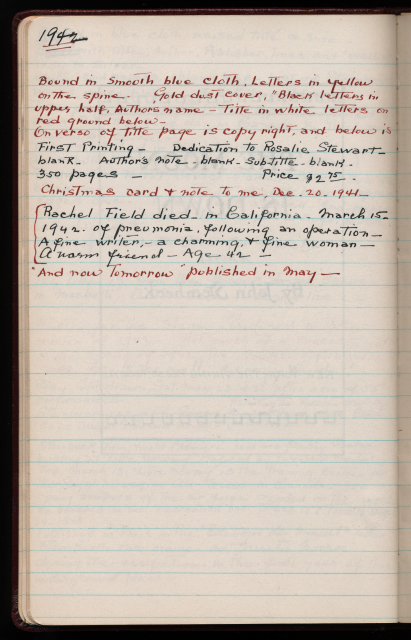 1942
Bound in smooth blue cloth. Letters in yellow
on the spine. Gold dust cover, "Black letters in
upper half, Authors name - Title in white letters on
red ground below -
On verso of title page is copyright, and below is
First Printing - Dedication to Rosalie Stewart -
blank - Author's note - blank - Sub-title - blank -
350 pages - Price $2.75 -
Christmas card & note to me, Dec. 20 - 1941 -
Rachel Field died - in California - March 15 -
1942 - of pneumonia, following an operation -
A fine writer, - a charming, & fine woman -
A warm friend - Age 42 -
"And now Tomorrow" published in May -
By John Steinbeck